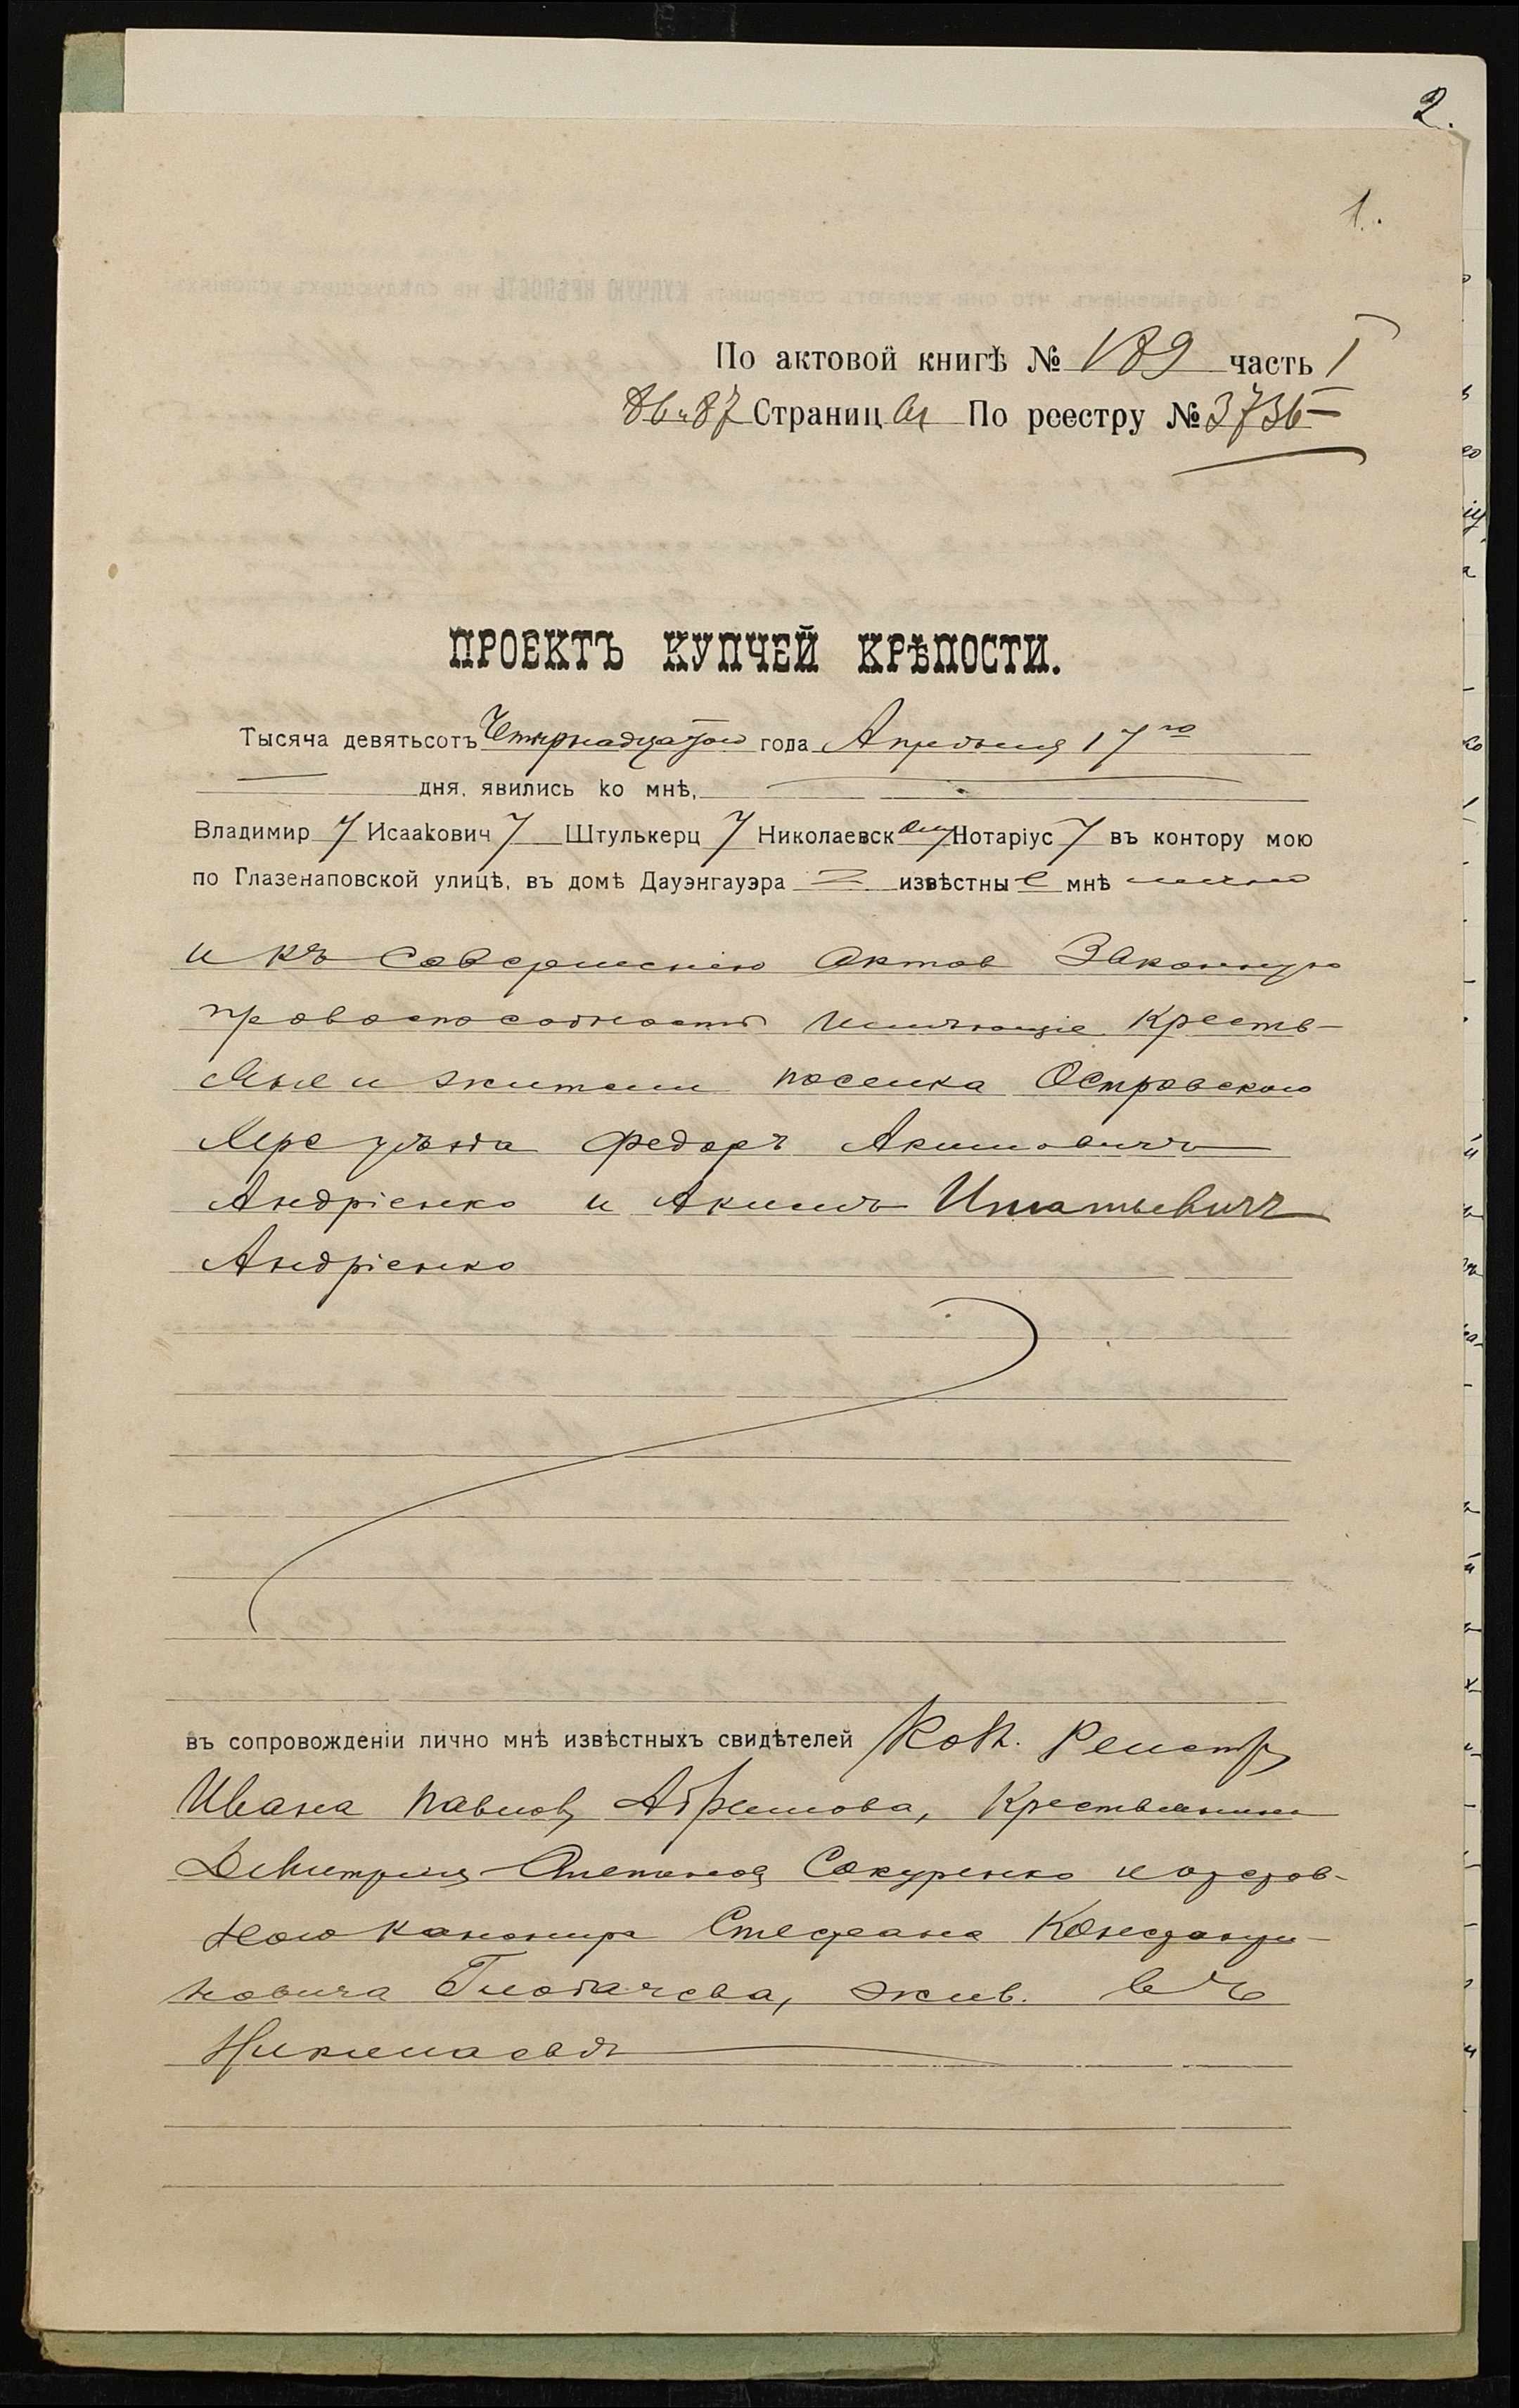 2.
1.
По актовой книгѣ № 189 часть I
86 и 87 Страниц ы По реестру № 3736
ПРОЕКТЪ КУПЧЕЙ КРѢПОСТИ.
Тысяча девятьсотъ Четырнадцатого года Апрѣля 17го
дня, явились ко мнѣ,
Владимир у Исаакович у Штулькерц у Николаевск ому Нотаріус у въ контору мою
по Глазенаповской улицѣ, въ домѣ Дауэнгауэра извѣстны е мнѣ лично
и къ совершенію актов законную
правоспособность имѣющіе Кресть-
яне и жители поселка Островского
Хере уѣзда Федоръ Акимовичъ
Андріенко и Акимъ Игнатьевичъ
Андріенко
въ сопровожденіи лично мнѣ извѣстныхъ свидѣтелей Кол. Регистр
Ивана Павлов Абрамова, Крестьянина
Дмитрия Сокуренко и
канонира Стефана
новича жив. въ
Николаевѣ